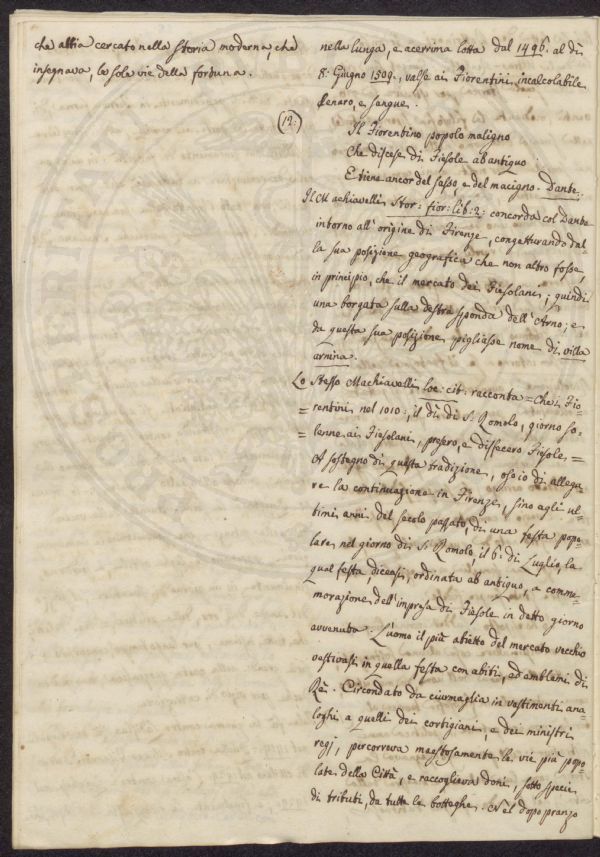 che abbia cercato nella storia moderna, che
insegnava, la sola vie della fortuna.
nella lunga, e acerrima lotta dal 1496. al dì
8. Giugno 1509., valse ai Fiorentini incalcolabile
denaro, e sangue.
(12.)
Il Fiorentino popolo maligno
Che discese di Fiesole ab antiquo
E tiene ancor del sasso, e del macigno. Dante.
Il Machiavelli Stor: fior: lib: 2: concorda col Dante
intorno all'origine di Firenze, congetturando dal-
la sua posizione geografica che non altro fosse,
in principio, che il mercato dei Fiesolani; quindi
una borgata sulla destra sponda dell'Arno; e
da questa sua posizione pigliasse nome di villa
arnina.
Lo Stesso Machiavelli loc: cit: racconta = Che i Fio-
= rentini nel 1010:, il dì di S. Romolo, giorno so-
= lenne ai Fiesolani, presero, e disfecero Fiesole, =
A sostegno di questa tradizione, oso io di allega-
re la continuazione in Firenze, sino agli ul-
timi anni del secolo passato, di una festa popo-
lare nel giorno di S. Romolo, il 6. di Luglio, la
qual festa, diceasi, ordinata ab antiquo, a comme-
morazione dell'impresa di Fiesole in detto giorno
avvenuta. L'uomo il più abietto del mercato vecchio
vestivasi in quella festa con abiti, ed emblemi di
Rè. Circondato da ciurmaglia in vestimenti ana-
loghi a quelli dei cortigiani, e dei ministri
regj, percorreva maestosamente le vie più popo-
late della Città, e raccoglieva doni, sotto specie
di tributi, da tutte le botteghe. Nel dopo pranzo